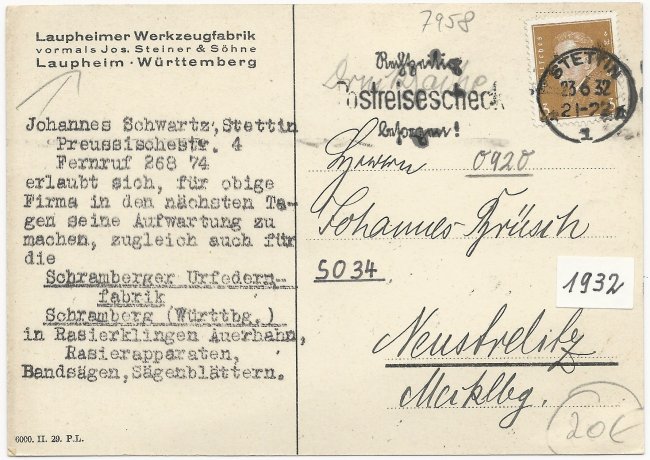 Laupheimer Werkzeugfabrik
vormals Jos. Steiner & Söhne
Laupheim · Württemberg
Johannes Schwartz, Stettin
Preussischestr. 4
Fernruf 268 74
erlaubt sich, für obige
Firma in den nächsten Ta-
gen seine Aufwartung zu
machen, zugleich auch für
die
Schramberger Urfedern-
fabrik
Schramberg (Württbg.)
in Rasierklingen Auerhahn,
Rasierapparaten,
Bandsägen, Sägenblättern.
6000. II. 29. P.L.
7958
Drucksache
Rechtzeitig
Postreisescheck
besorgen!
STETTIN
23.6.32
21-22
1
Herrn
0920
Johannes Brüsch
SO34
1932
Neustrelitz
Mecklbg.
20€